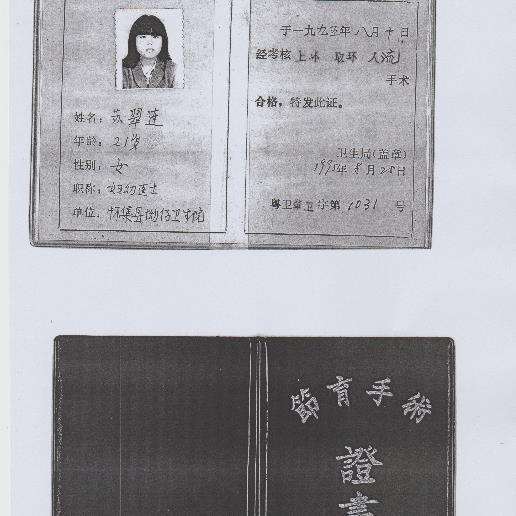 姓名：苏翠莲
年龄：21岁
性别：女
职称：妇幼医士
单位：怀集县坳仔卫生院
于一九九五年八月十日
经考核 上环 取环 人流
手术
合格，特发此证。
卫生局(盖章)
1995年8月25日
粤卫 卫字第1031号
節育手術
證書